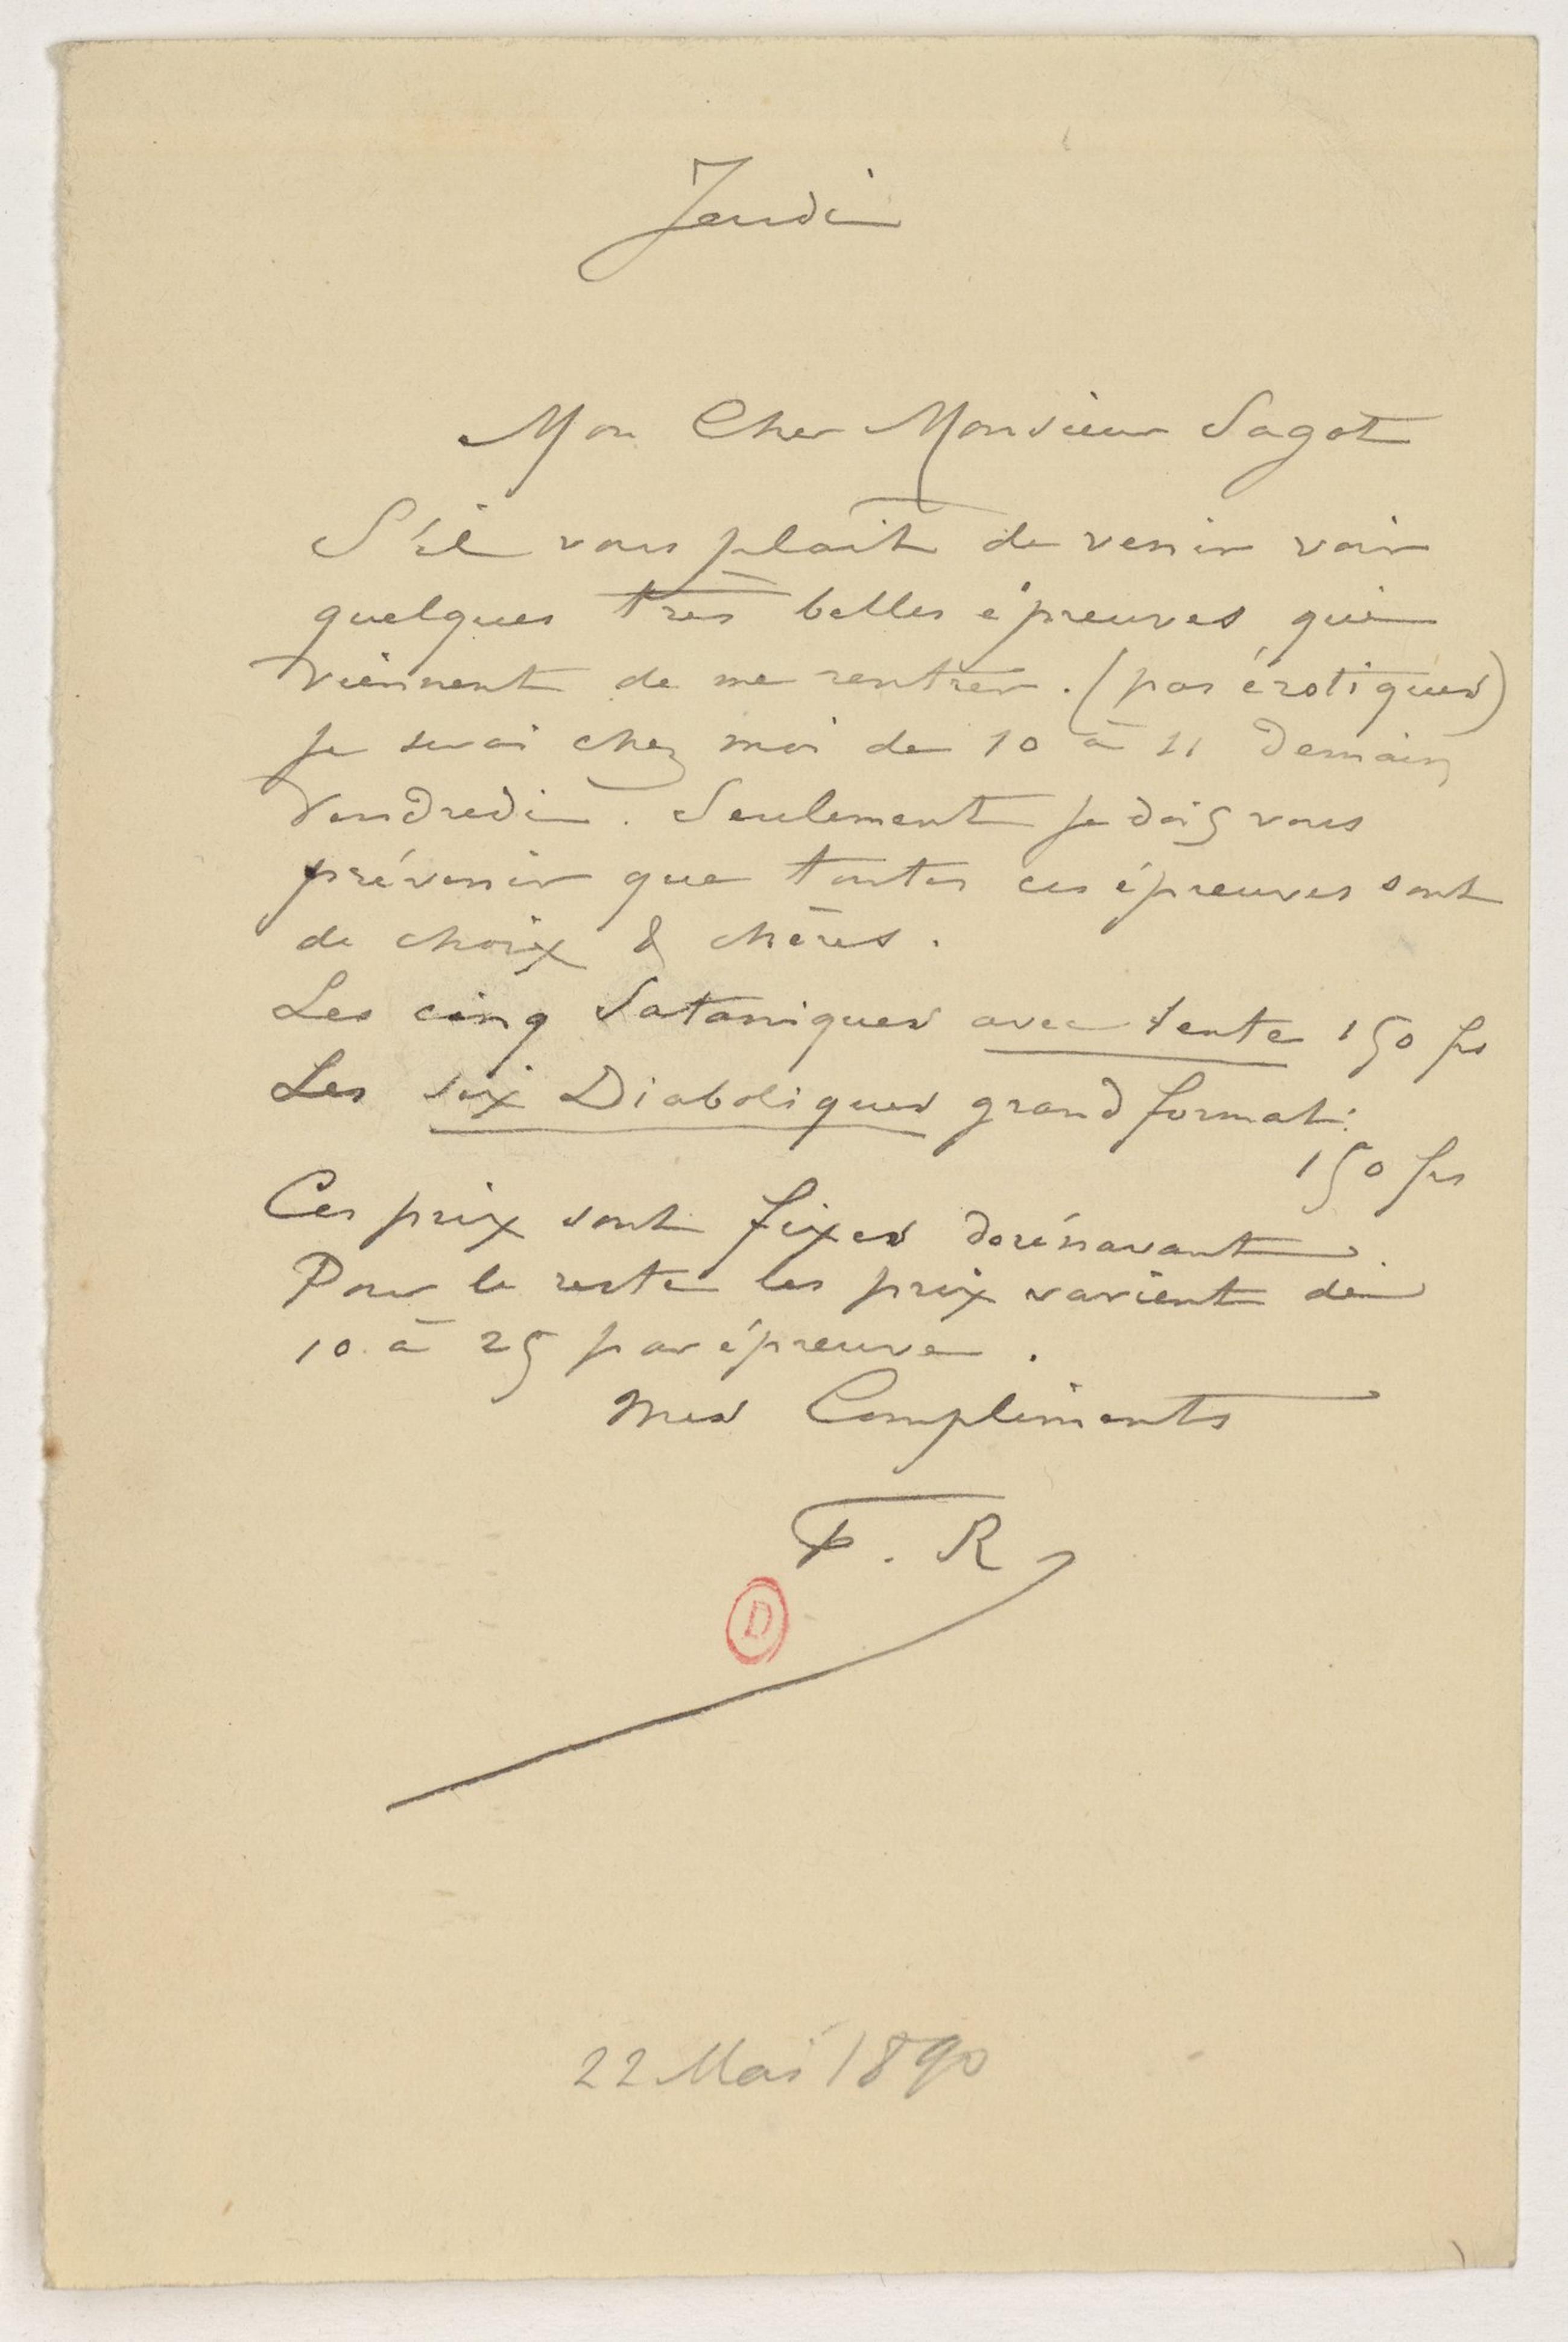 Jeudi
Mon Cher Monsieur Sagot
S'il vous plait de venir voir
quelques très belles épreuves qui
viennent de me rentrer. (pas érotiques)
Je serai chez moi de 10 à 11 demain
Vendredi. Seulement je dois vous
prévenir que toutes ces épreuves sont
de choix & chères.
Les cinq Sataniques avec texte 150 frs
Les six Diaboliques grand format:
150 frs
Ces prix sont fixes dorénavant
Pour le reste les prix varient de
10 à 25 par épreuve.
Mes Compliments
F. R
D
22 Mai 1890